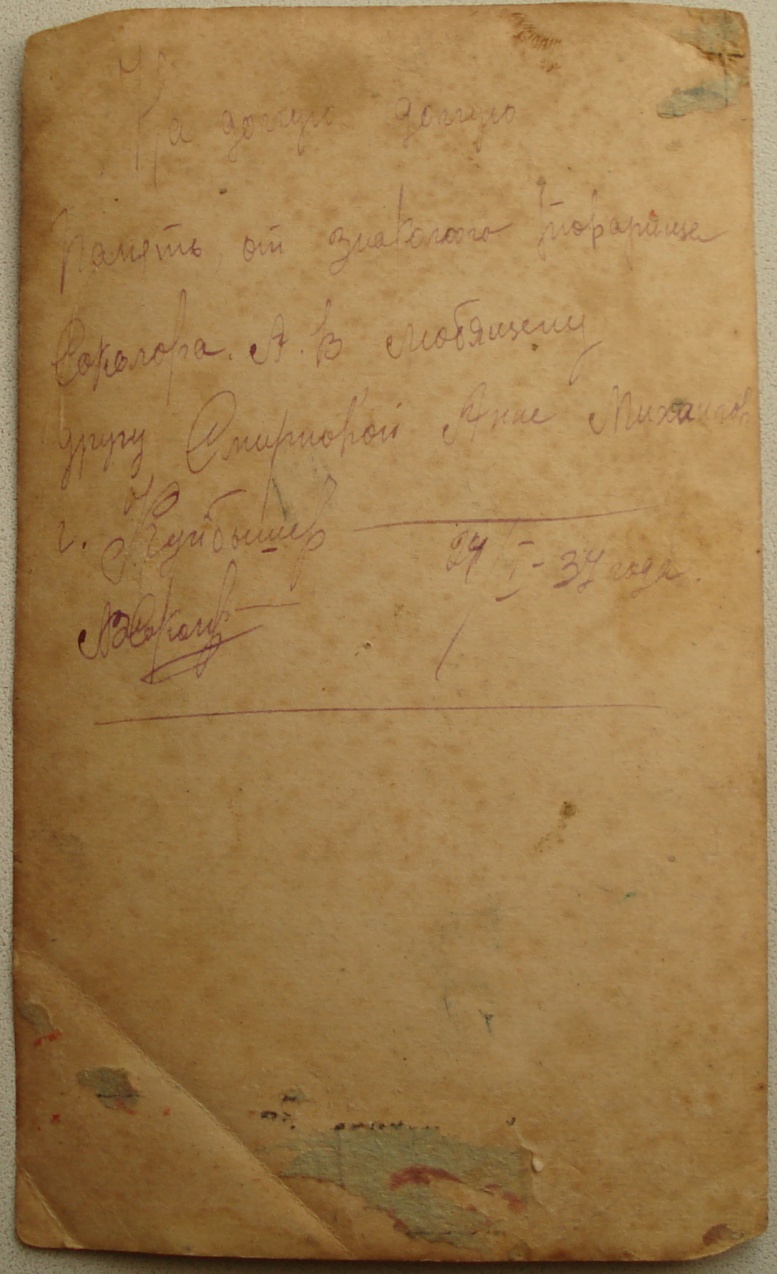 На долгую долгую
Память, от знакомого товарища
Соколова. А. В любящему
другу Смирновой Анне Михайлов
г. Куйбышев
24/I-37 года.
АВСоколов